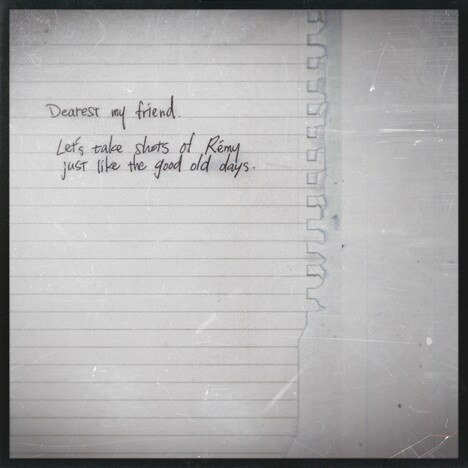 Dearest my friend.
Let's take shots of Rémy
just like the good old days.